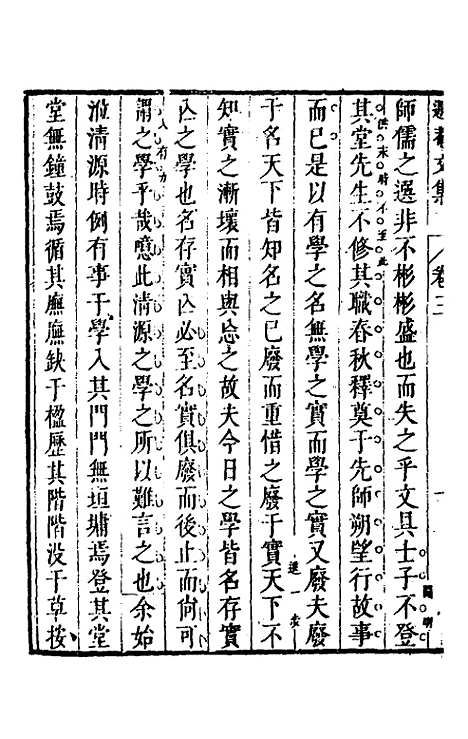 文集 卷三
師儒之選非不彬彬盛也而失之乎文具士子不登
其堂先生不修其職春秋釋奠于先師朔望行故事
而已是以有學之名無學之實而學之實又廢夫廢
于名天下皆知名之已廢而重借之廢于實天下不
知實之漸壞而相與忘之故夫今日之學皆名存實
亾之學也名存實亾必至名實俱廢而後止而尙可
謂之學乎哉噫此清源之學之所以難言之也余始
涖清源時例有事于學入其門門無垣墉焉登其堂
堂無鐘鼓焉循其廡廡缺于楹歷其階階没于草桉